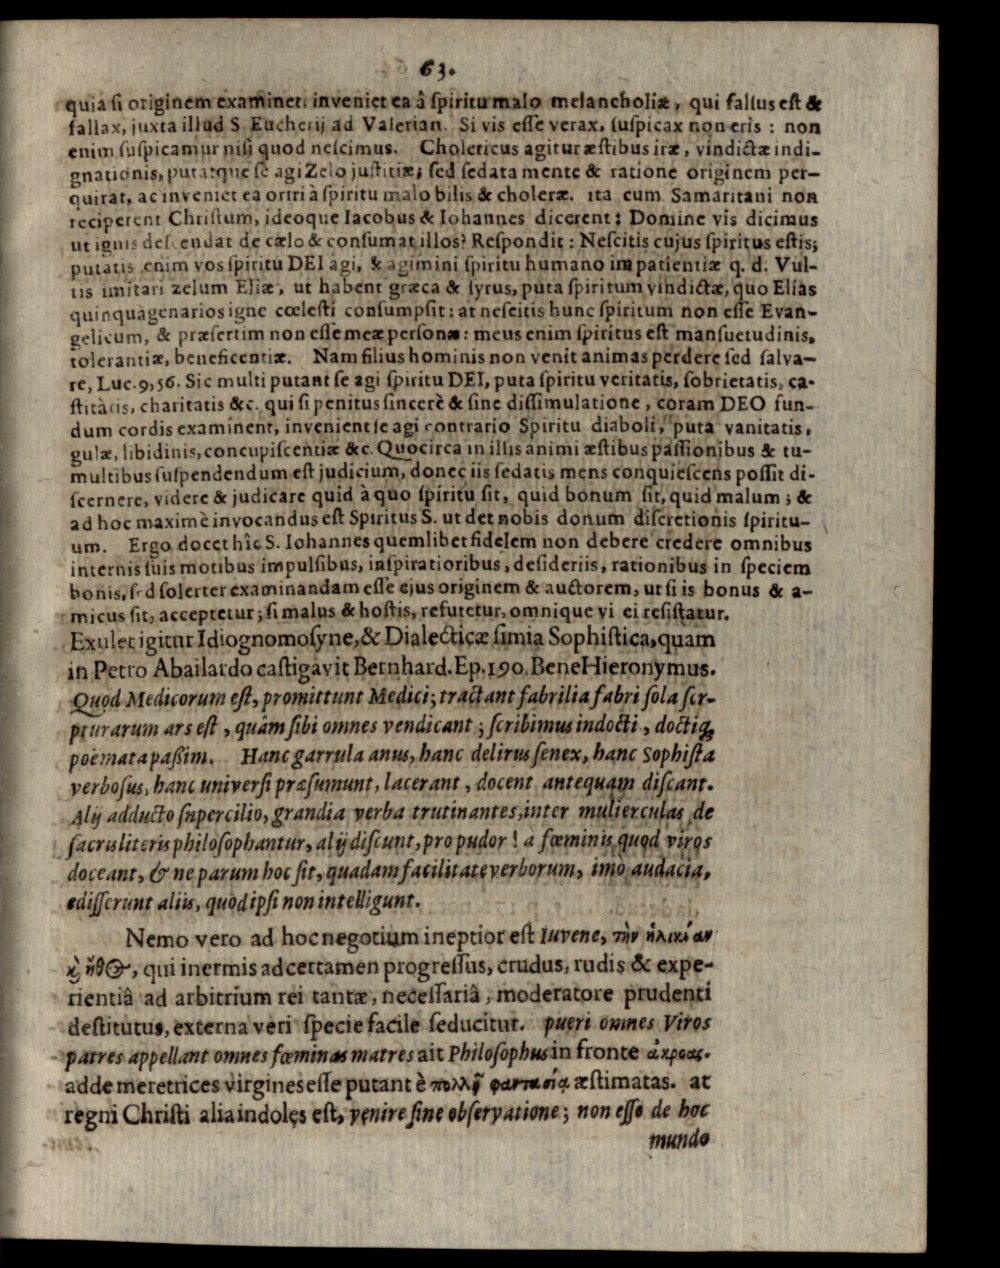 63.
quia ſi originem examinet, inveniet ea â ſpiritu malo melancholiæ, qui falſus eſt &
fallax, juxta illud S Eucherij ad Valerian. Si vis eſſe verax, ſuſpicax non eris : non
enim ſuſpicamur niſi quod neſcimus. Cholericus agitur æſtibus iræ, vindictæ indi-
gnationis, putatque ſe agi Zelo juſtitiæ; ſed ſedata mente & ratione originem per-
quirat, ac inveniet ea oriri à ſpiritu malo bilis & choleræ. ita cum Samaritani non
reciperent Chriſtum, ideoque Iacobus & Iohannes dicerent: Domine vis dicimus
ut ignis deſcendat de cælo & conſumat illos? Reſpondit : Neſcitis cujus ſpiritus eſtis;
putatis enim vos ſpiritu DEI agi, & agimini ſpiritu humano impatientiæ q. d. Vul-
tis imitari zelum Eliæ, ut habent græca & ſyrus, puta ſpiritum vindictæ, quo Elias
quinquagenarios igne cœleſti conſumpſit: at neſcitis hunc ſpiritum non eſſe Evan-
gelicum, & præſertim non eſſe meæ perſonæ: meus enim ſpiritus eſt manſuetudinis,
tolerantiæ, beneficentiæ. Nam filius hominis non venit animas perdere ſed ſalva-
re, Luc. 9, 56. Sic multi putant ſe agi ſpiritu DEI, puta ſpiritu veritatis, ſobrietatis, ca-
ſtitàtis, charitatis &c. qui ſi penitus ſincerè & ſine diſſimulatione, coram DEO fun-
dum cordis examinent, invenient ſe agi contrario Spiritu diaboli, puta vanitatis,
gulæ, libidinis, concupiſcentiæ &c. Quocirca in illis animi æſtibus paſſionibus & tu-
multibus ſuſpendendum eſt judicium, donec iis ſedatis mens conquieſcens poſſit di-
ſcernere, videre & judicare quid à quo ſpiritu ſit, quid bonum ſit, quid malum ; &
ad hoc maximè invocandus eſt Spiritus S. ut det nobis donum diſcretionis ſpiritu-
um. Ergo docet hîc S. Iohannes quemlibet fidelem non debere credere omnibus
internis ſuis motibus impulſibus, inſpiratioribus, deſideriis, rationibus in ſpeciem
bonis, ſed ſolerter examinandam eſſe ejus originem & auctorem, ut ſi is bonus & a-
micus ſit, acceptetur; ſi malus & hoſtis, refutetur, omnique vi ei reſiſtatur.
Exulet igitur Idiognomoſyne, & Dialecticæ ſimia Sophiſtica, quam
in Petro Abailardo caſtigavit Bernhard. Ep. 190. Bene Hieronymus.
Quod Medicorum eſt, promittunt Medici; tractant fabrilia fabri ſola ſcr-
pturarum ars eſt, quam ſibi omnes vendicant ; ſcribimus indocti, doctiq́;
poëmata paßim. Hanc garrula anus, hanc delirus ſenex, hanc Sophiſta
verboſus, hanc univerſi præſumunt, lacerant, docent antequam diſcant.
Alij adducto ſupercilio, grandia verba trutinantes, inter mulierculas de
ſacris literis philoſophantur, alij diſcunt, pro pudor ! a fœminis quod viros
doceant, & ne parum hoc ſit, quadam facilitate verborum, imò audacia,
ediſſerunt aliis, quod ipſi non intelligunt.
Nemo vero ad hoc negotium ineptior eſt Iuvene, τὴν ἡλικίαν
ϗ̀ ἦθος, qui inermis ad certamen progreſſus, crudus, rudis & expe-
rientiâ ad arbitrium rei tantæ, neceſſariâ, moderatore prudenti
deſtitutus, externa veri ſpecie facile ſeducitur. pueri omnes Viros
patres appellant omnes fœminas matres ait Philoſophus in fronte ἀκροας.
adde meretrices virgines eſſe putant è πολλῇ φαντασίᾳ æſtimatas. at
regni Chriſti alia indoles eſt, venire ſine obſervatione; non eſſe de hoc
mundo